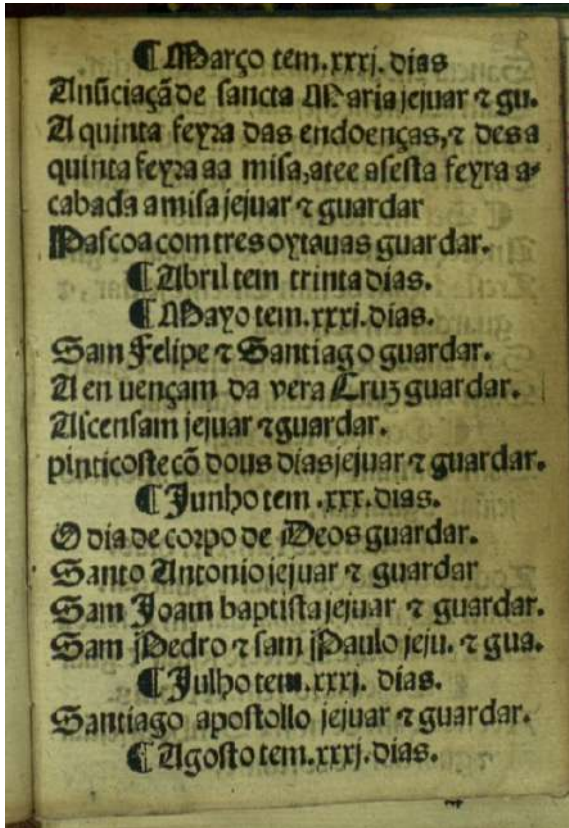 ¶ Março tem.xxxj.dias
Anũciaçã de sancta Maria jejuar ⁊ gu.
A quinta feyra das endoenças,⁊ des a
quinta feyra aa misa,atee a sesta feyra a⸗
cabada a misa jejuar ⁊ guardar
Pascoa com tres oytauas guardar.
¶ Abril tem trinta dias.
¶ Mayo tem.xxxi.dias.
Sam Felipe ⁊ Santiago guardar.
A en uençam da vera Cruz guardar.
Ascensam jejuar ⁊ guardar.
pinticoste cõ dous dias jejuar ⁊ guardar.
¶ Junho tem .xxx.dias.
O dia de corpo de Deos guardar.
Santo Antonio jejuar ⁊ guardar
Sam Joam baptista jejuar ⁊ guardar.
Sam Pedro ⁊ sam Paulo jeju. ⁊ gua.
¶ Julho tem.xxxj. dias.
Santiago apostollo jejuar ⁊ guardar.
¶ Agosto tem.xxxj.dias.